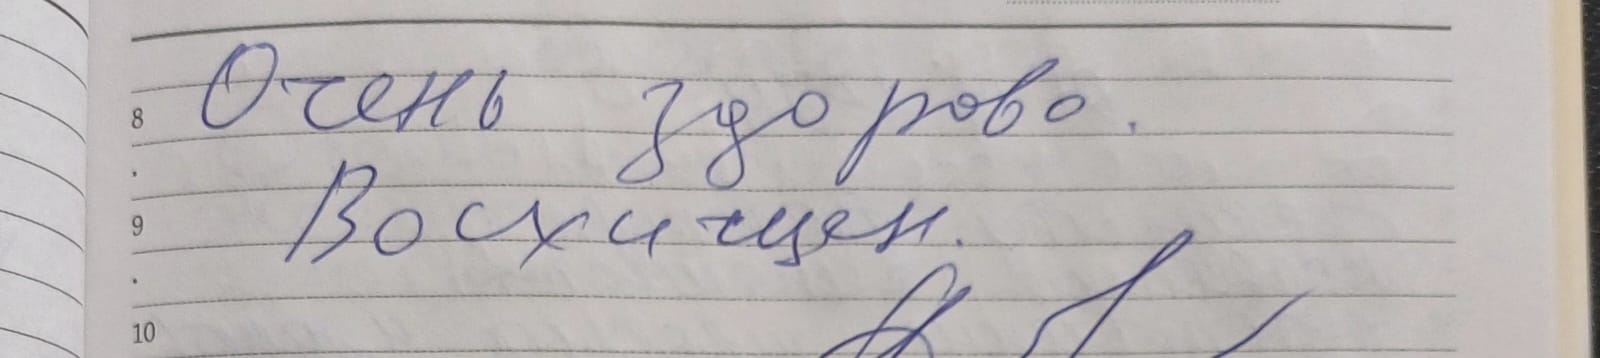 Очень здорово.
8
Восхищен.
9
10